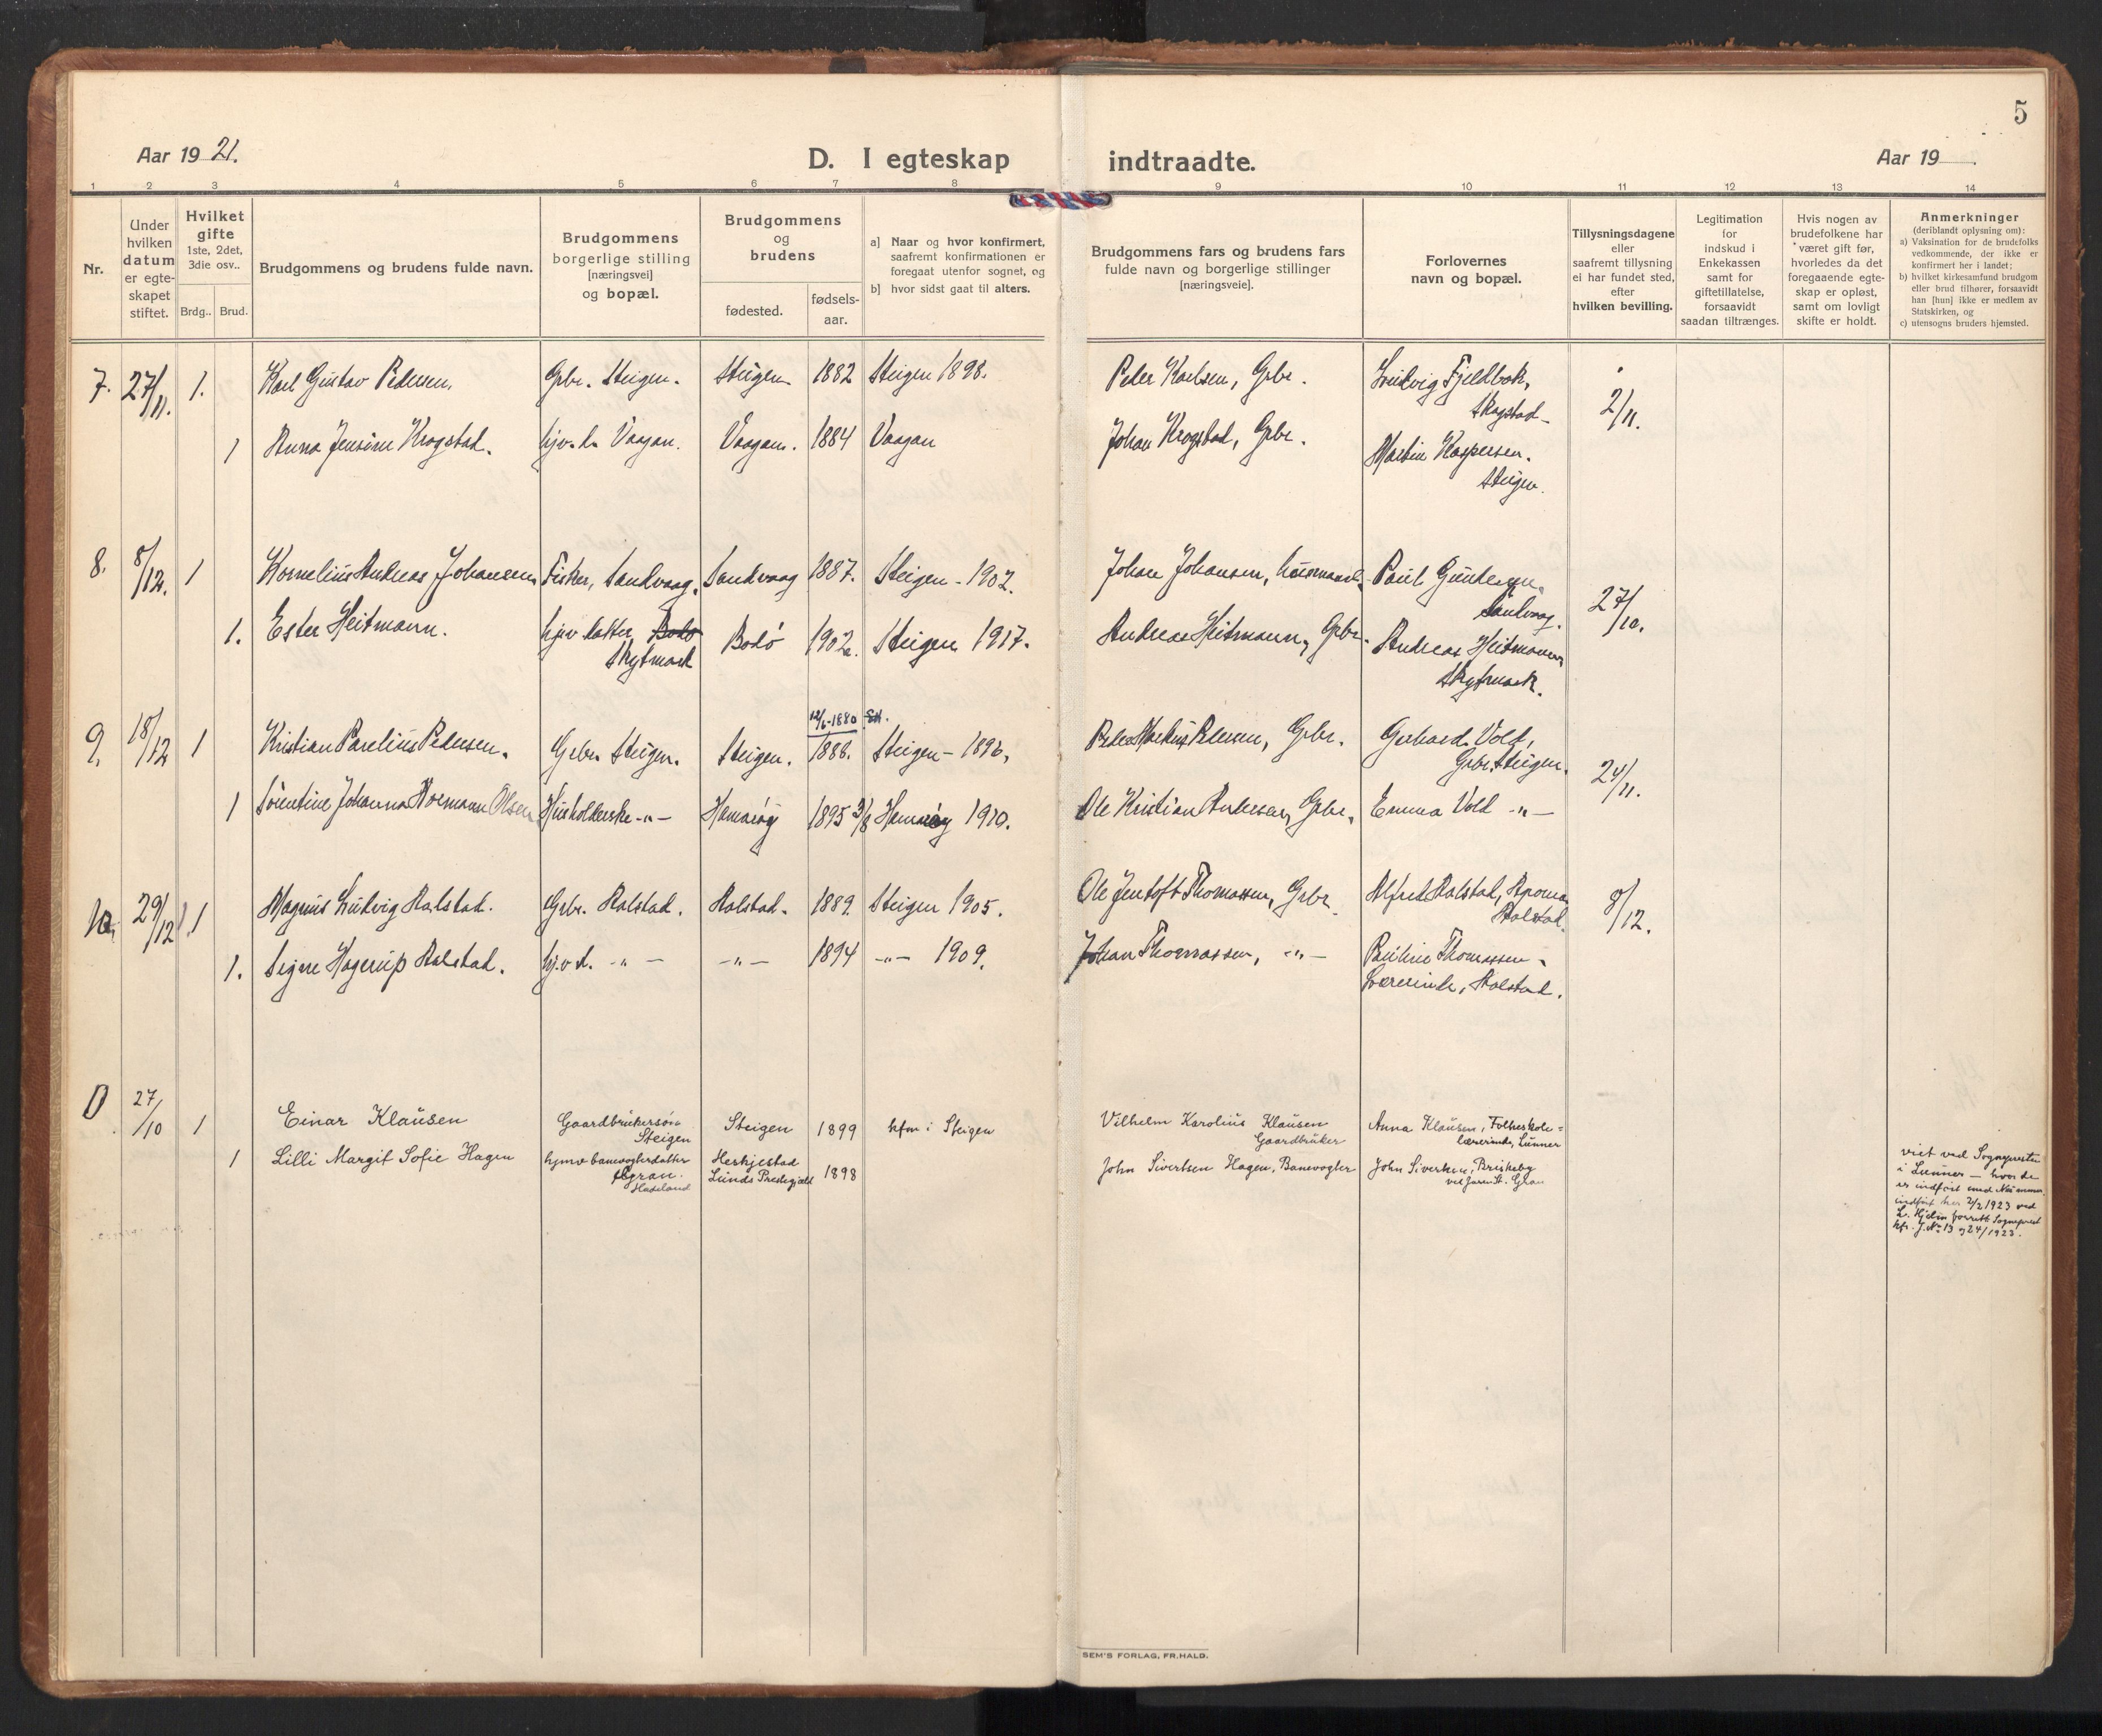 5
Aar 1921.
D. I egteskap
indtraadte.
Aar 19
1 2 3 4 5 6 7 8 9 10 11 12 13 14
Nr.
Under
hvilken
datum
er egte-
skapet
stiftet.
Hvilket
gifte
1ste, 2det,
3die osv..
Brdg.. Brud.
Brudgommens og brudens fulde navn.
Brudgommens
borgerlige stilling
[næringsvei]
og bopæl.
Brudgommens
og
brudens
fødested.
fødsels-
aar.
a] Naar og hvor konfirmert,
saafremt konfirmationen er
foregaat utenfor sognet, og
b] hvor sidst gaat til alters.
Brudgommens fars og brudens fars
fulde navn og borgerlige stillinger
[næringsveie].
Forlovernes
navn og bopæl.
Tillysningsdagene
eller
saafremt tillysning
ei har fundet sted,
efter
hvilken bevilling.
Legitimation
for
indskud i
Enkekassen
samt for
giftetillatelse,
forsaavidt
saadan tiltrænges.
Hvis nogen av
brudefolkene har
været gift før,
hvorledes da det
foregaaende egte-
skap er opløst,
samt om lovligt
skifte er holdt.
Anmerkninger
(deriblandt oplysning om):
a) Vaksination for de brudefolks
vedkommende, der ikke er
konfirmert her i landet;
b) hvilket kirkesamfund brudgom
eller brud tilhører, forsaavidt
han [hun] ikke er medlem av
Statskirken, og
c) utensogns bruders hjemsted.
7. 27/11. 1. Karl Gustav Pedersen. Grbr. Steigen. Steigen 1882 Steigen 1898. Peder Karlsen, Grbr. Ludvig Fjeldbak,
Skagstad 2/11.
1 Anna Jensine Krogstad. hjv. d. Vaagan. Vaagan. 1884 Vaagan Johan Krogstad, Grbr. Martin Kaspersen.
Steigen.
8. 8/12. 1 Kornelius Andreas Johansen Fisker, Sandvaag. Sandvaag 1887. Steigen - 1902. Johan Johansen, husmand Paul
Sandvaag. 27/10.
1. Ester Heitmann. hjv datter Bodø
Skytmark Bodø 1902. Steigen 1917. Andreas Heitmann, Grbr. Andreas Heitmann
Skytmark.
12/6-1880
9. 18/12 1 Kristian Parelius Pedersen. Grbr. Steigen. Steigen. 1888. Steigen - 1896. Peder Markus Pedersen, Grbr. Gerhard Vold,
Grbr. Steigen. 24/11.
1 Sörentine Johanna Normann Olsen Husholderske -"- Hamarøy 1895 3/8 Hamarøy 1910. Ole Kristian Andersen, Grbr. Emma Vold -"-
10. 29/12 1 Magnus Ludvig Aalstad. Grbr. Aalstad. Aalstad. 1889. Steigen 1905. Ole Jentoft Thomassen, Grbr. Alfred Aalstad,
Aalstad 8/12.
1. Signe Hagerup Aalstad. hj.v d. -"- -"- 1894 -"- 1909. Johan Thomassen, -"- Pauline Thomassen
Lærerinde, Aalstad.
0 27/10 1 Einar Klausen Gaardbrukersøn
Steigen Steigen 1899 kfm i Steigen Vilhelm Karolius Klausen
Gaardbruker Anna Klausen, Folkeskole=
lærerinde, Lunner
1 Lilli Margit Sofie Hagen hjmv banevogterdatter
Gran.
Hadeland Heskjestad
Lunds Prestegjæld 1898 John Sivertsen Hagen, Banevogter John Sivertsen, Briskeby
ved Jaren St. Gran
viet ved Sognepresten
i Lunner - hvor de
er indført med Nummer
indført her 2/2 1923 ved
L. Hjelm Sogneprest
kfr. J.No 13 og 24/1923.
SEM'S FORLAG, FR.HALD.